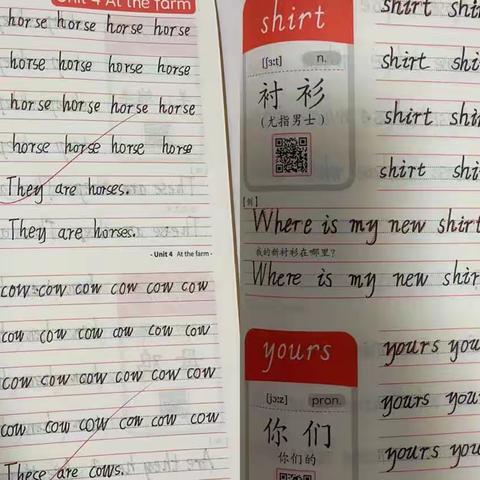 Unit 4 At the farm
horse horse horse horse
horse horse horse horse
horse horse horse horse
horse horse horse horse
They are horses.
They are horses.
- Unit 4 At the farm -
cow cow cow cow cow cow
cow cow cow cow cow cow
cow cow cow cow cow cow
cow cow cow cow cow cow
These are cows.
shirt
[ʃɜːt] n.
衬衫
(尤指男士)
shirt
shirt
shirt
shirt
【例】
Where is my new shirt
我的新衬衫在哪里?
Where is my new shirt
yours
[jɔːz] pron.
你们
你们的
yours you
yours you
yours